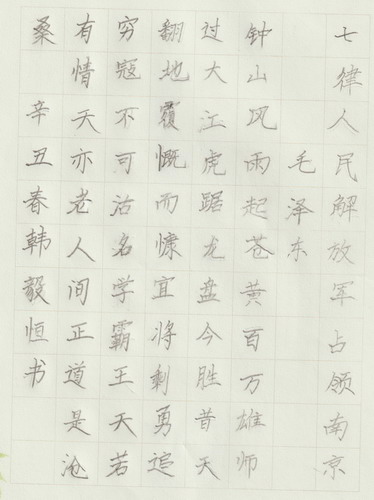 七律人民解放军占领南京
毛泽东
钟山风雨起苍黄百万雄师
过大江虎踞龙盘今胜昔天
翻地覆慨而慷宜将剩勇追
穷寇不可沽名学霸王天若
有情天亦老人间正道是沧
桑 辛丑春韩毅恒书